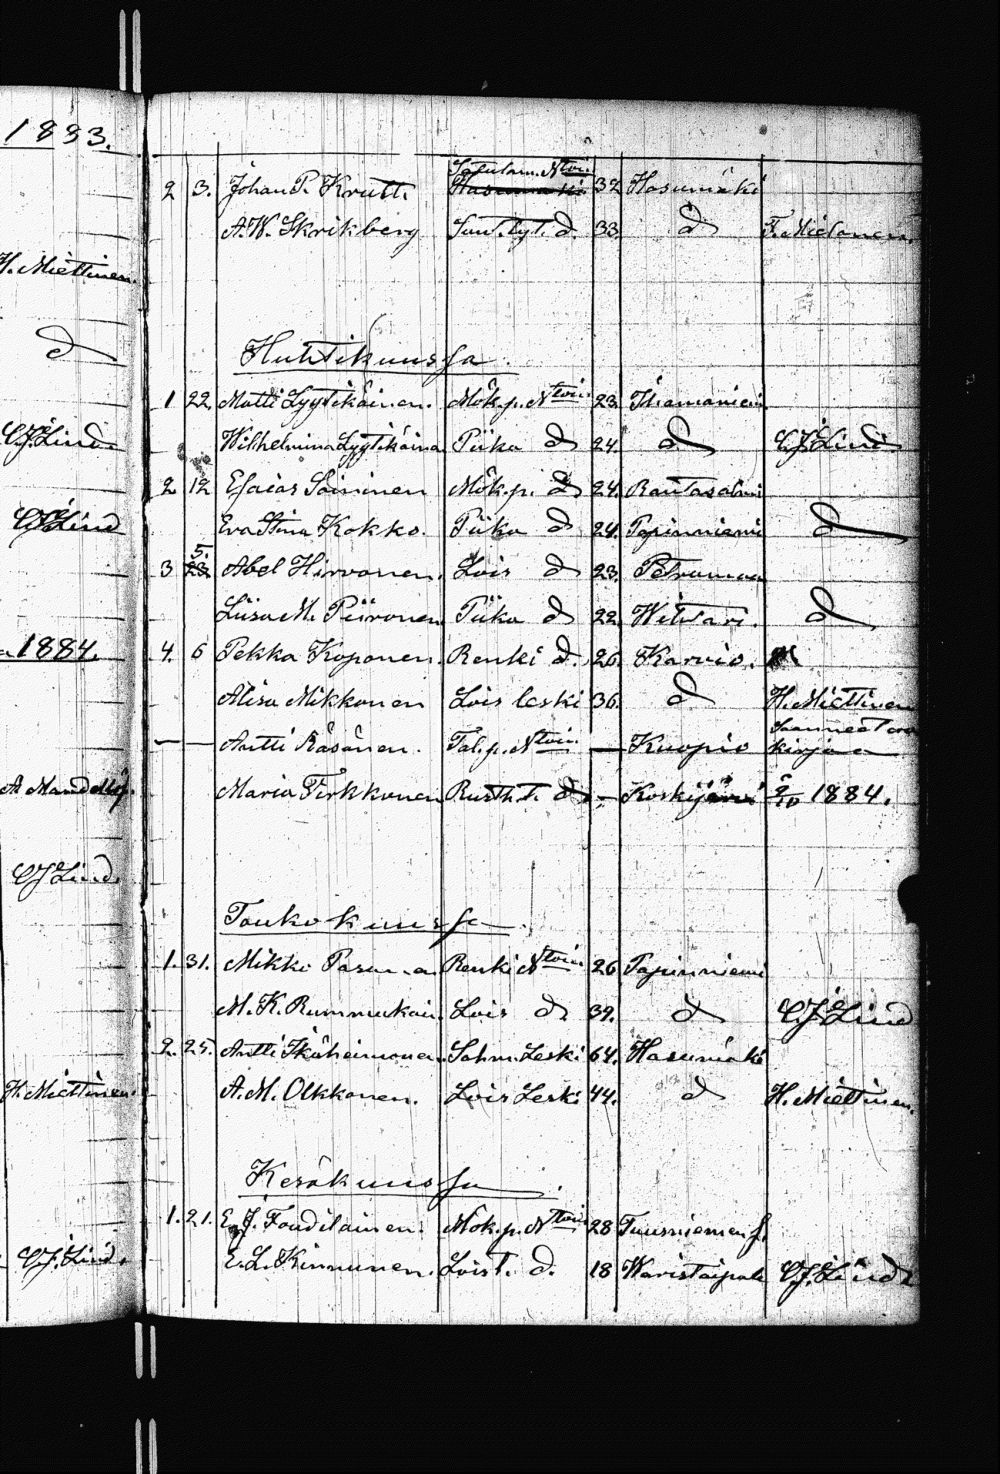 1883.
H. Miettinen.
d
C.J. Lind
C.J. Lind
1884.
A Mandelöf.
C J Lind.
H. Miettinen.
C.J. Lind.
2 3. Johan P. Krutt. Ntöin. 32 Hasumäki
A. W. Skrikberg d. 33. d
Huhtikuussa.
1 22. Matti Lyytikäinen. Mök.p. Ntöin. 23.
Wilhelmina Lyytikäinen Piika d 24. d C.J. Lind
2 12 Esaias Soininen Mök.p. d 24. Rautasalmi
Eva Stina Kokko. Piika d 24. Papinniemi d
3 5. Abel Hirvonen. Lois d 23. Petrumaa
Liisa M. Piironen Piika d 22. d
4. 6 Pekka Koponen. Renki d. 26. Karvio.
Alisa Mikkonen Lois leski 36. d H. Miettinen
— — Antti Räsänen. Tal.p. Ntöin. — Kuopio kirjan
Maria Tirkkonen d — Koskijärvi 5/10 1884.
Toukokuussa.
1. 31. Mikko Renki Ntöin 26 Papinniemi
M. K. Lois d. 39. d C.J. Lind
2. 25. Antti Ikäheimonen. Leski 64. Hasumäki
A. M. Olkkonen. Lois Leski 44. d H. Miettinen.
Kesäkuussa.
1. 21. E. J. Mök.p. Ntöin 28
E. L. Kinnunen. Loist. d. 18 Waristaipale C.J. Lind